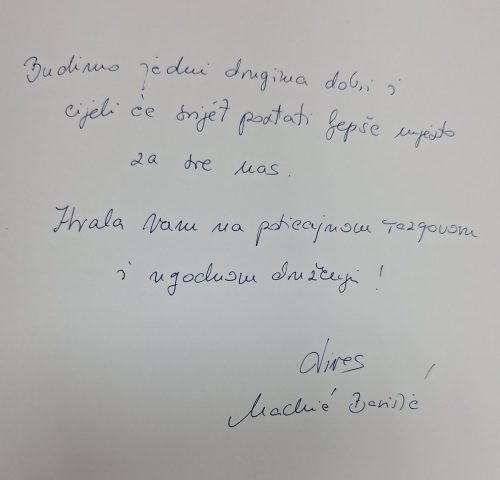 Budimo jedni drugima dobri i
cijeli će svijet postati ljepše mjesto
za sve nas.
Hvala Vam na poticajnom razgovoru
i ugodnom druženju!
Ines
Maduć